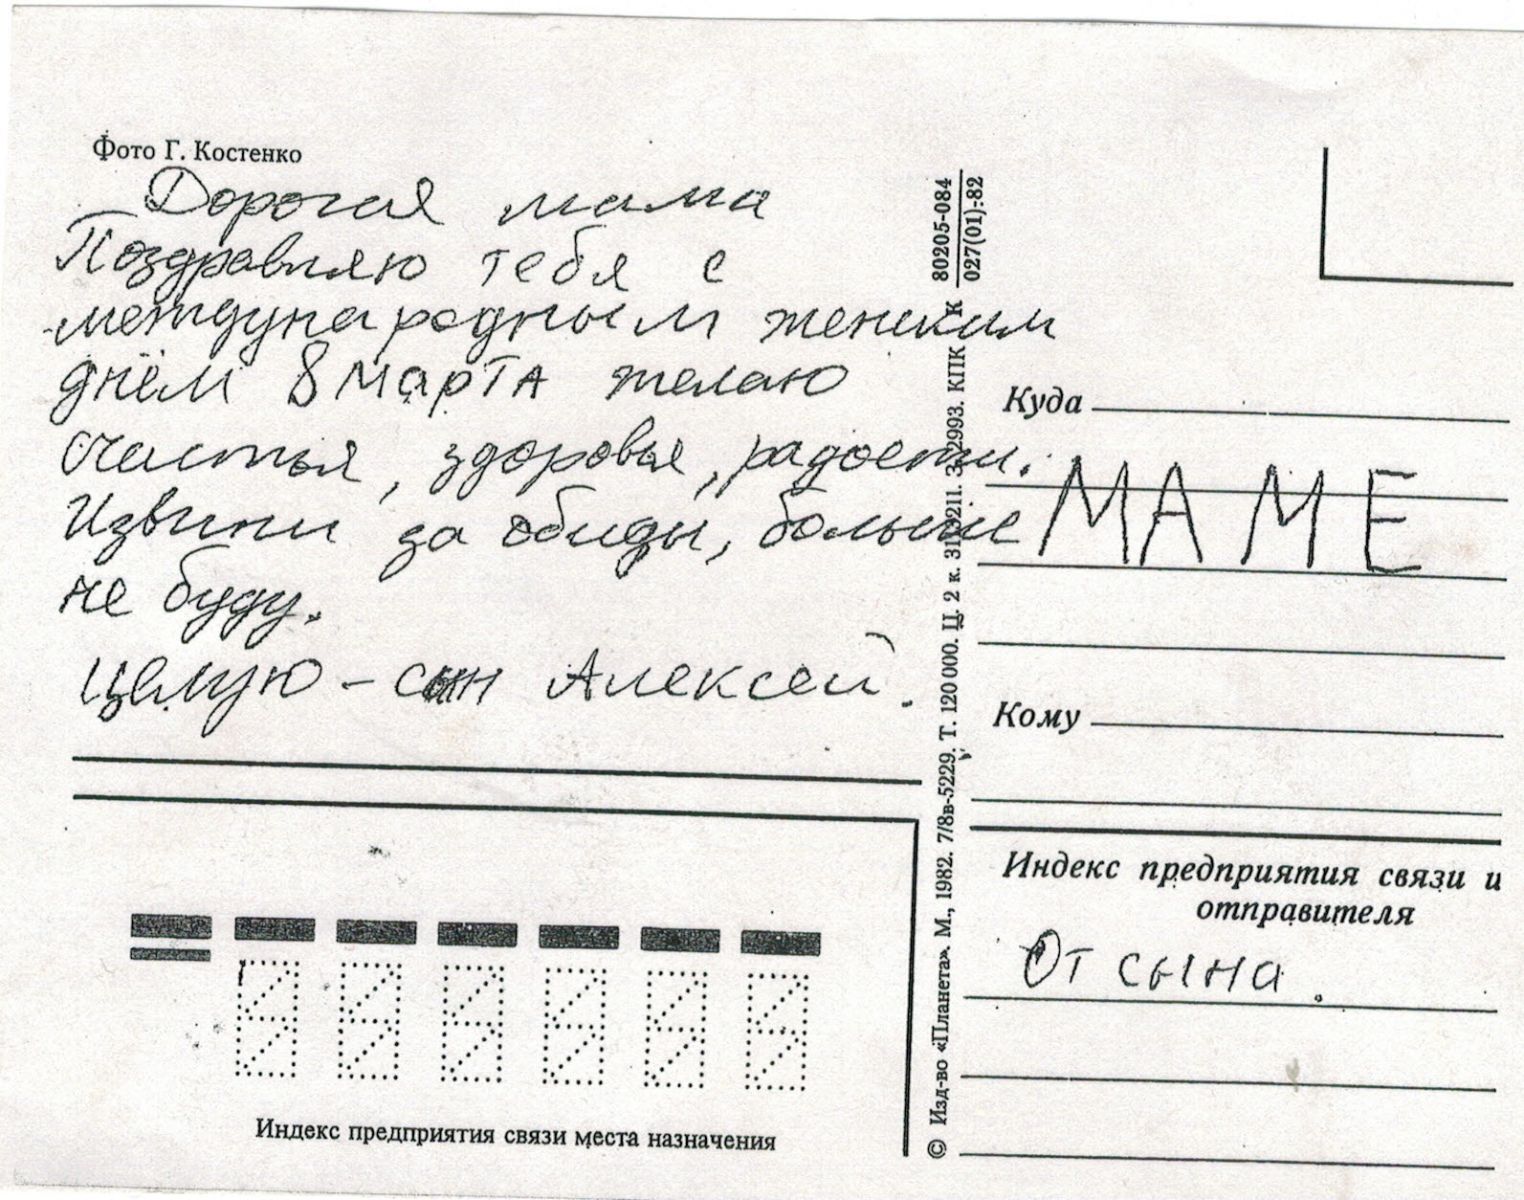 Фото Г. Костенко
Дорогая мама
Поздравляю тебя с
международным женским
днём 8 марта желаю
счастья, здоровья, радости.
Извини за обиды, больше
не буду.
Целую – сын Алексей.
Индекс предприятия связи места назначения
80205-084
027(01)-82
© Изд-во «Планета». М., 1982. 7/8в-5229. Т. 120 000. Ц. 2 к. 2993. КПК
Куда
МАМЕ
Кому
Индекс предприятия связи и
отправителя
От сына.